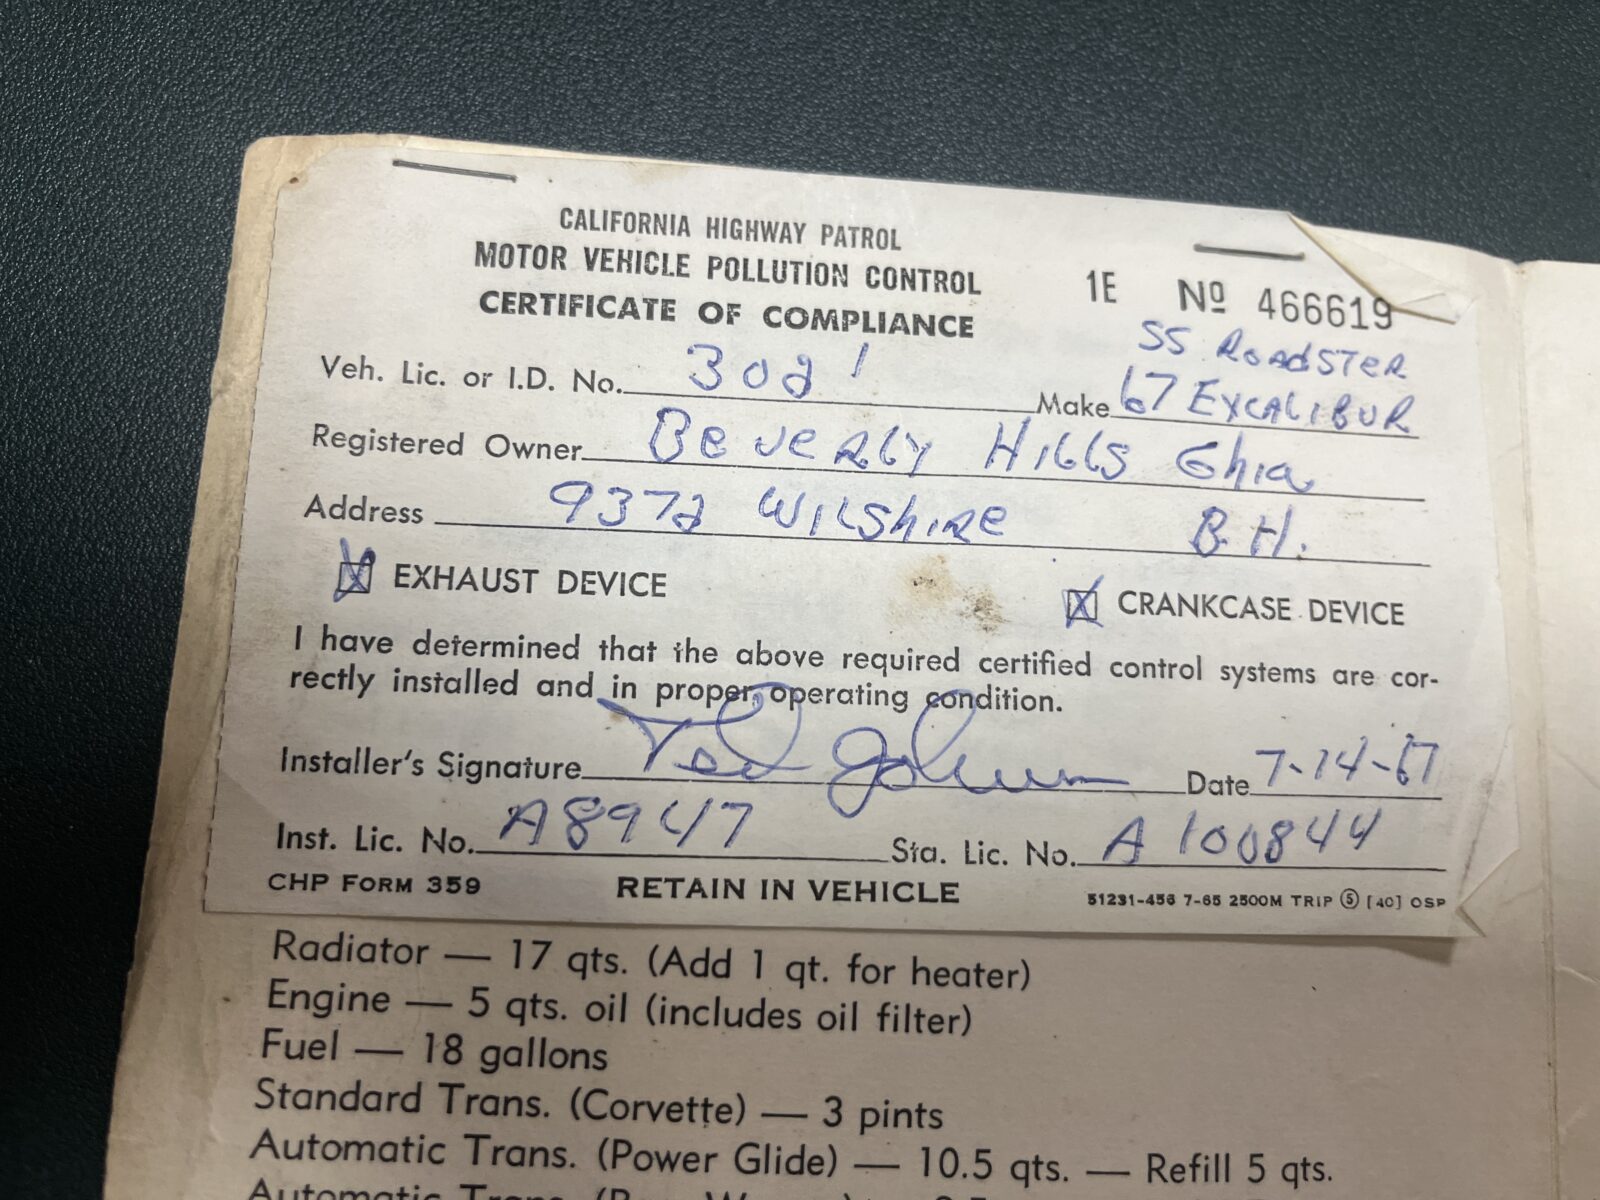 CALIFORNIA HIGHWAY PATROL
MOTOR VEHICLE POLLUTION CONTROL
CERTIFICATE OF COMPLIANCE
1E Nº 466619
SS ROADSTER
Veh. Lic. or I.D. No. 3021 Make 67 EXCALIBUR
Registered Owner Beverly Hills Ghia
Address 9372 Wilshire B.H.
EXHAUST DEVICE CRANKCASE DEVICE
I have determined that the above required certified control systems are cor-
rectly installed and in proper operating condition.
Installer's Signature Ted Johnson Date 7-14-67
Inst. Lic. No. A8947 Sta. Lic. No. A 100844
CHP FORM 359 RETAIN IN VEHICLE 51231-456 7-65 2500M TRIP Ⓢ [40] OSP
Radiator — 17 qts. (Add 1 qt. for heater)
Engine — 5 qts. oil (includes oil filter)
Fuel — 18 gallons
Standard Trans. (Corvette) — 3 pints
Automatic Trans. (Power Glide) — 10.5 qts. — Refill 5 qts.
Automatic Trans.